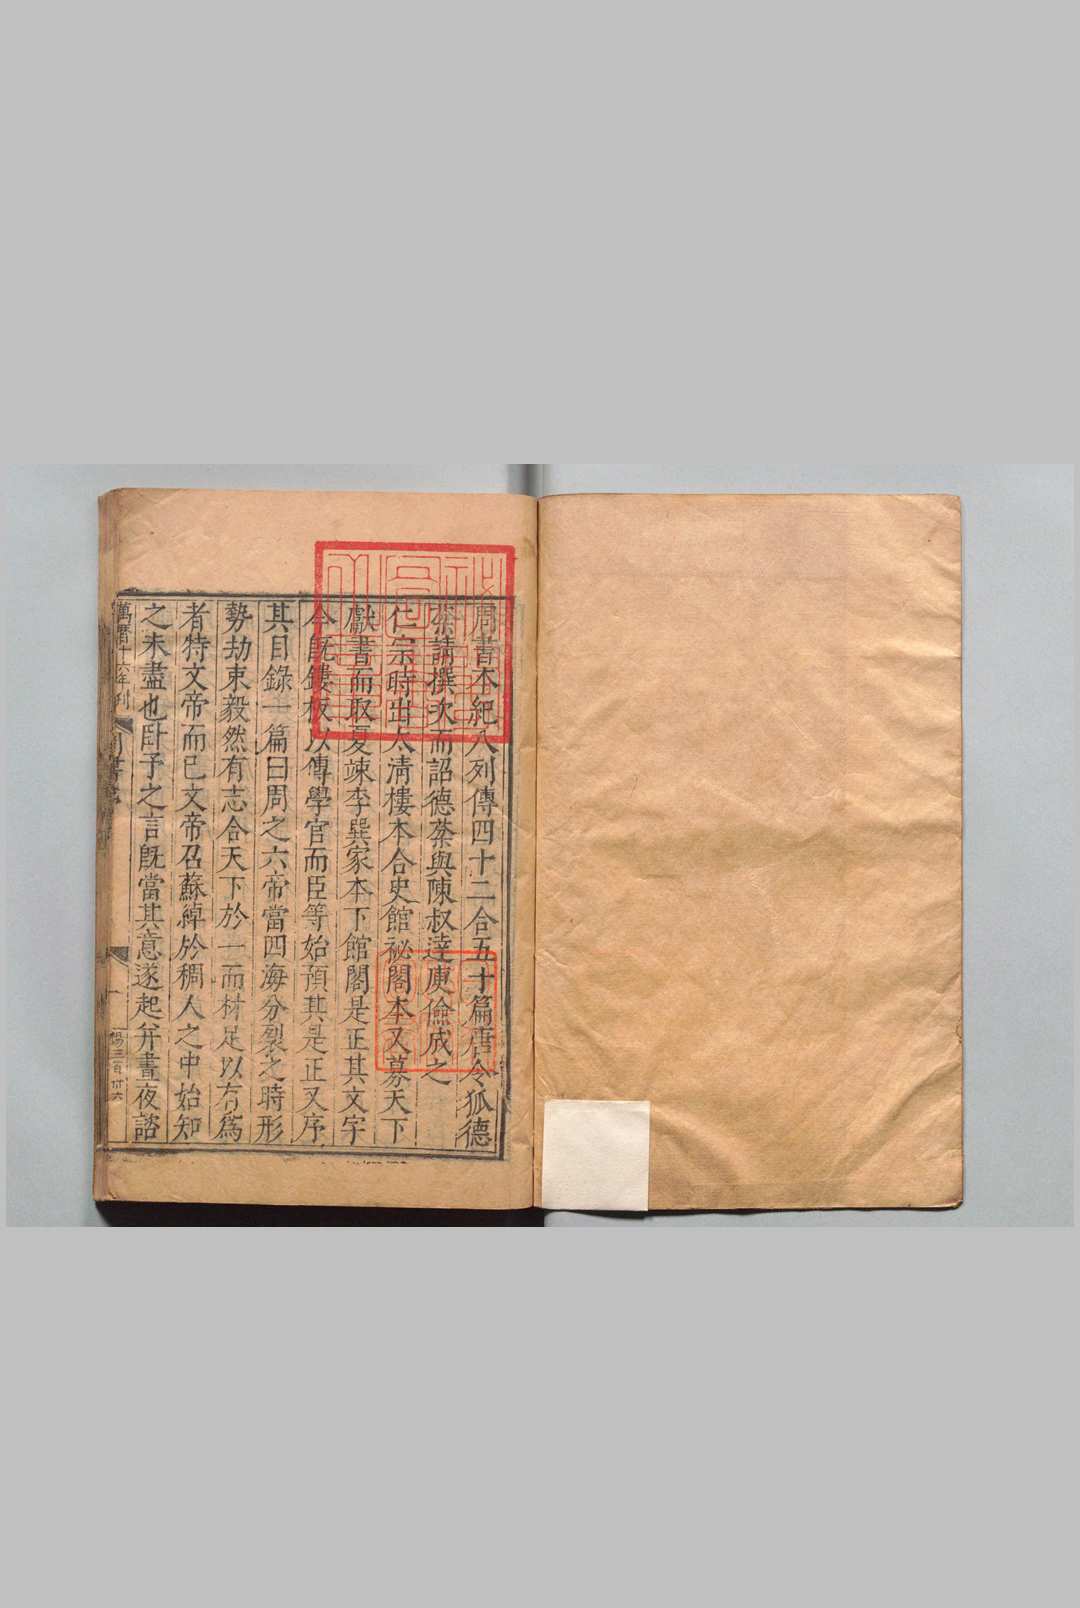 周書本紀八列傳四十二合五十篇唐令狐德
棻請撰次而詔德棻與陳叔達庾儉成之
仁宗時出太清樓本合史館祕閣本又募天下
獻書而取夏竦李巽家本下館閣是正其文字
今旣鏤板以傳學官而臣等始預其是正又序
其目錄一篇曰周之六帝當四海分裂之時形
勢劫束毅然有志合天下於一而材足以有爲
者特文帝而已文帝召蘇綽於稠人之中始知
之未盡也臥予之言旣當其意遂起幷晝夜諮
萬曆十六年刊
周書序
一
楊三百卅六